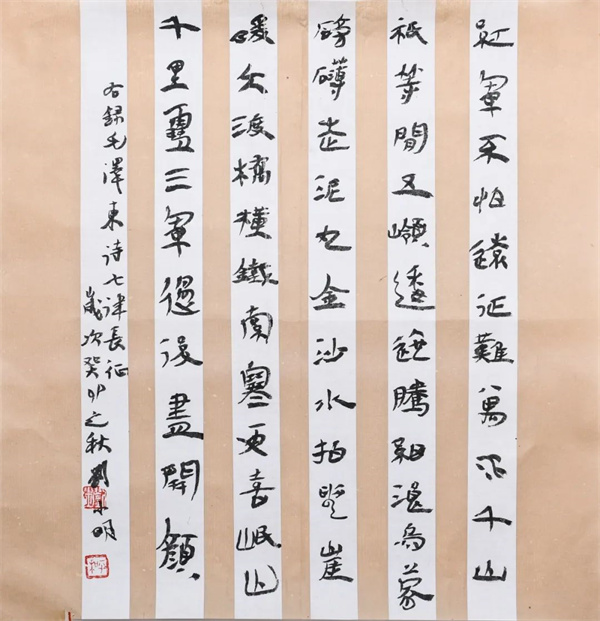 紅軍不怕遠征難萬水千山
祇等閒五嶺逶迤騰細浪烏蒙
磅礴走泥丸金沙水拍雲崖
暖大渡橋橫鐵索寒更喜岷山
千里雪三軍過後盡開顔
右録毛澤東诗七律長征
歲次癸卯之秋劉明